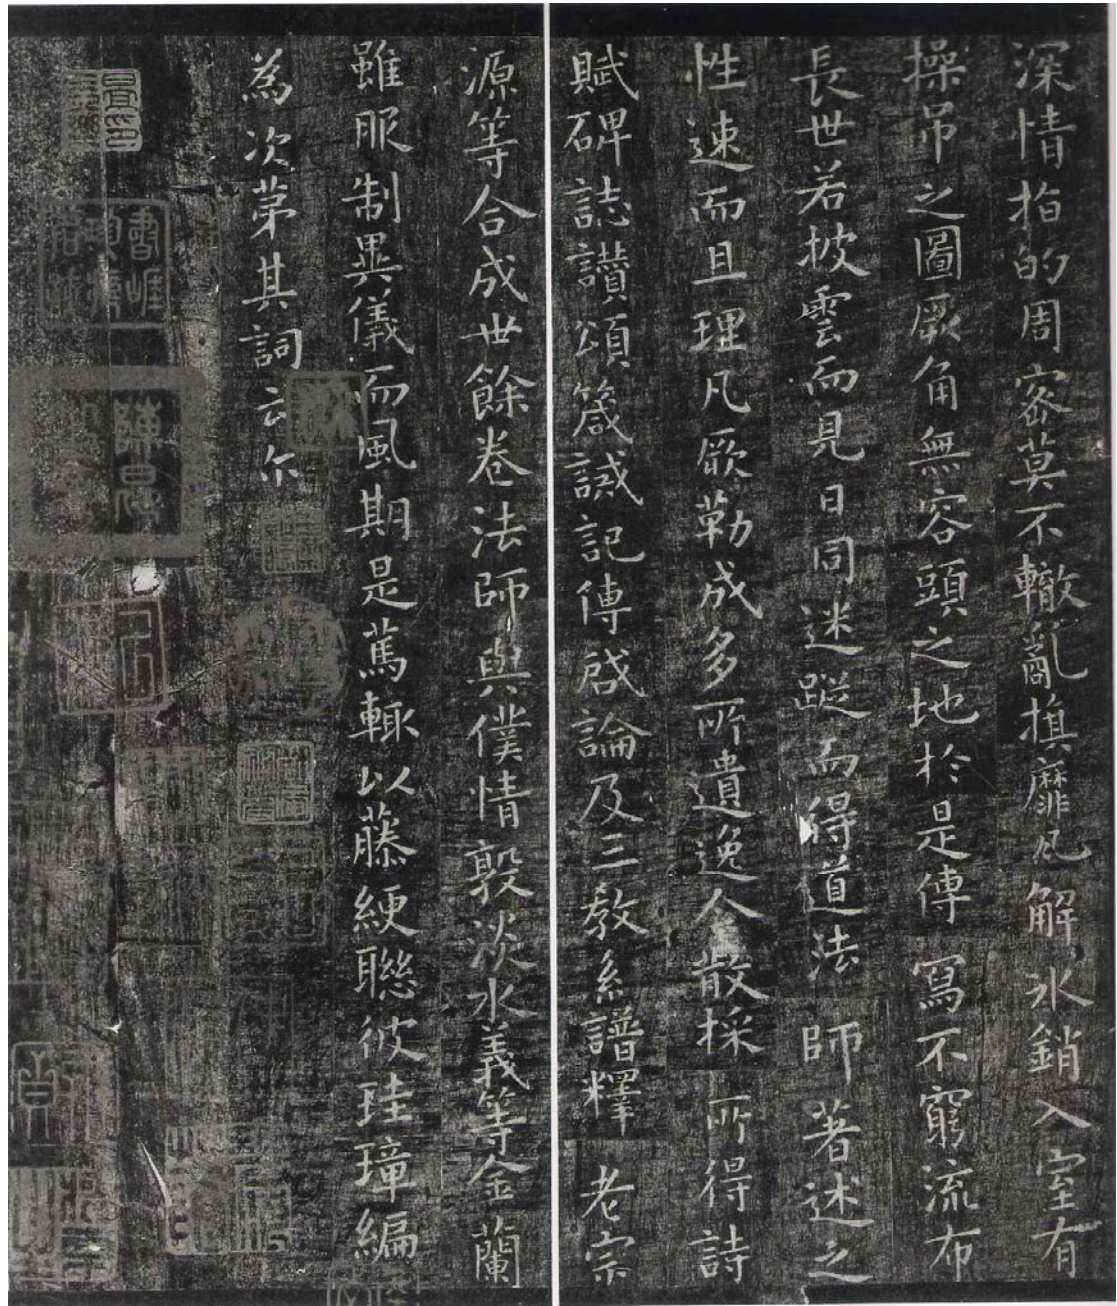 深情指的周密莫不轍亂旗靡瓦解冰銷入室有
操吊之圖厥角無容頭之地於是傳寫不窮流布
長世若披雲而見日同迷蹤而得道法師著述之
性速而且理凡厥勒成多所遺逸今散採所得詩
賦碑誌讚頌箴誡記傳啓論及三教系譜釋老宗
源等合成世餘卷法師與僕情敦淡水義等金蘭
雖服制異儀而風期是篤輒以藤緶聯彼珪璋編
為次第其詞云尔
陳晟